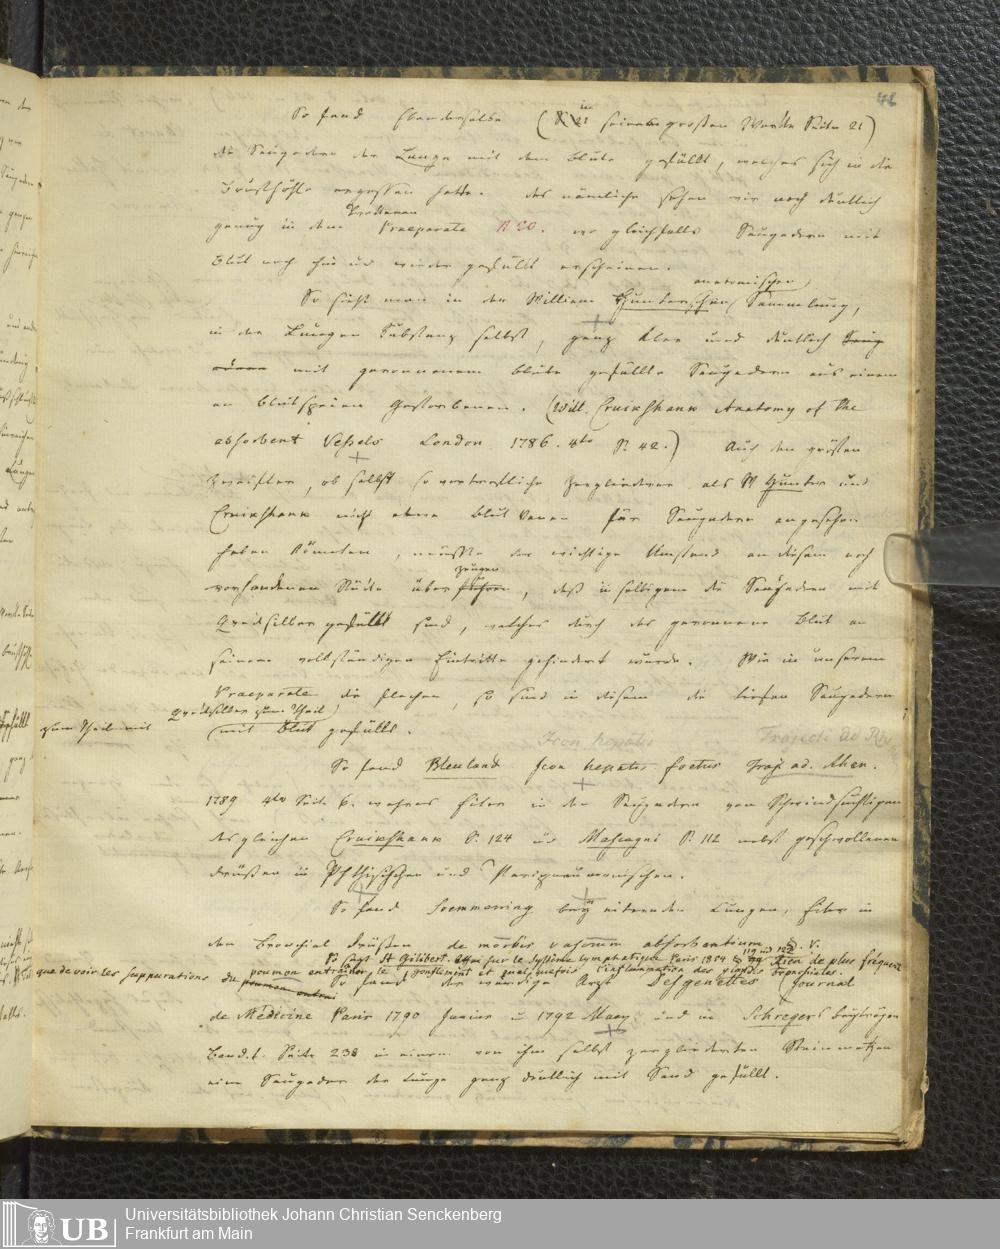 46
So fand Ebenderselbe (in seinem großen Werke Seite 21)
die Saugadern der Lunge mit dem Blute gefüllt, welches sich in die
Brusthöhle ergossen hatte. Das nämliche sehen wir noch deutlich
genug in dem trockenen Praeparate N 20. wo gleichfalls Saugadern mit
Blut noch hin und wieder gefüllt erscheinen.
So sieht man in der William Hunterschen anatomischen Sammlung,
in der Lungen Substanz selbst, ganz klar und deutlich
mit geronnenem Blute gefüllte Saugadern aus einem
an Blutspeien Gestorbenen. (Will. Cruikshank Anatomy of the
absorbent Vessels London 1786. 4to S. 42.) Auch den größten
Zweifler, ob selbst so vortreffliche Zergliederer als W Hunter und
Cruikshank nicht etwa Blut Venen für Saugadern angesehen
haben könnten, müßte der wichtige Umstand an diesem noch
vorhandenen Stücke überzeugen, daß die Saugadern mit
Quecksilber gefüllt sind, welches durch das geronnene Blut an
seinem vollständigen Eintritte gehindert wurde. Wie in unserem
Praeparate die flachen, so sind in diesem die tiefen Saugadern
zum Theil mit Quecksilber zum Theil
mit Blut gefüllt.
Icon hepatis Trajecti ad Rh
So fand Bleuland Icon hepatis foetus Traj. ad. Rhen.
1789 4to Seite 6. wahres Eiter in den Saugadern von Schwindsüchtigen
desgleichen Cruikshank S. 124 und Mascagni S. 112 nebst geschwollenen
Drüsen in Phthisischen und Peripneumonischen.
So fand Soemmerring bey eiternden Lungen, Eiter in
den Bronchial Drüsen de morbis vasorum absorbentium
So sagt St Gilibert. sur le Système lymphatique Paris 1804 Rien de plus fréquent
que de voir les suppurations du poumon entraîner le gonflement et quelquefois l'inflammation des glandes bronchiales.
So fand der würdige Arzt Desgenettes (Journal
de Médicine Paris 1790 Junius u 1792 May und in Schregers beyträgen
Band. 1. Seite 238 in einem von ihm selbst zergliederten Steinmetzen
eine Saugader der Lunge ganz deutlich mit Sand gefüllt.
Universitätsbibliothek Johann Christian Senckenberg
Frankfurt am Main
UB